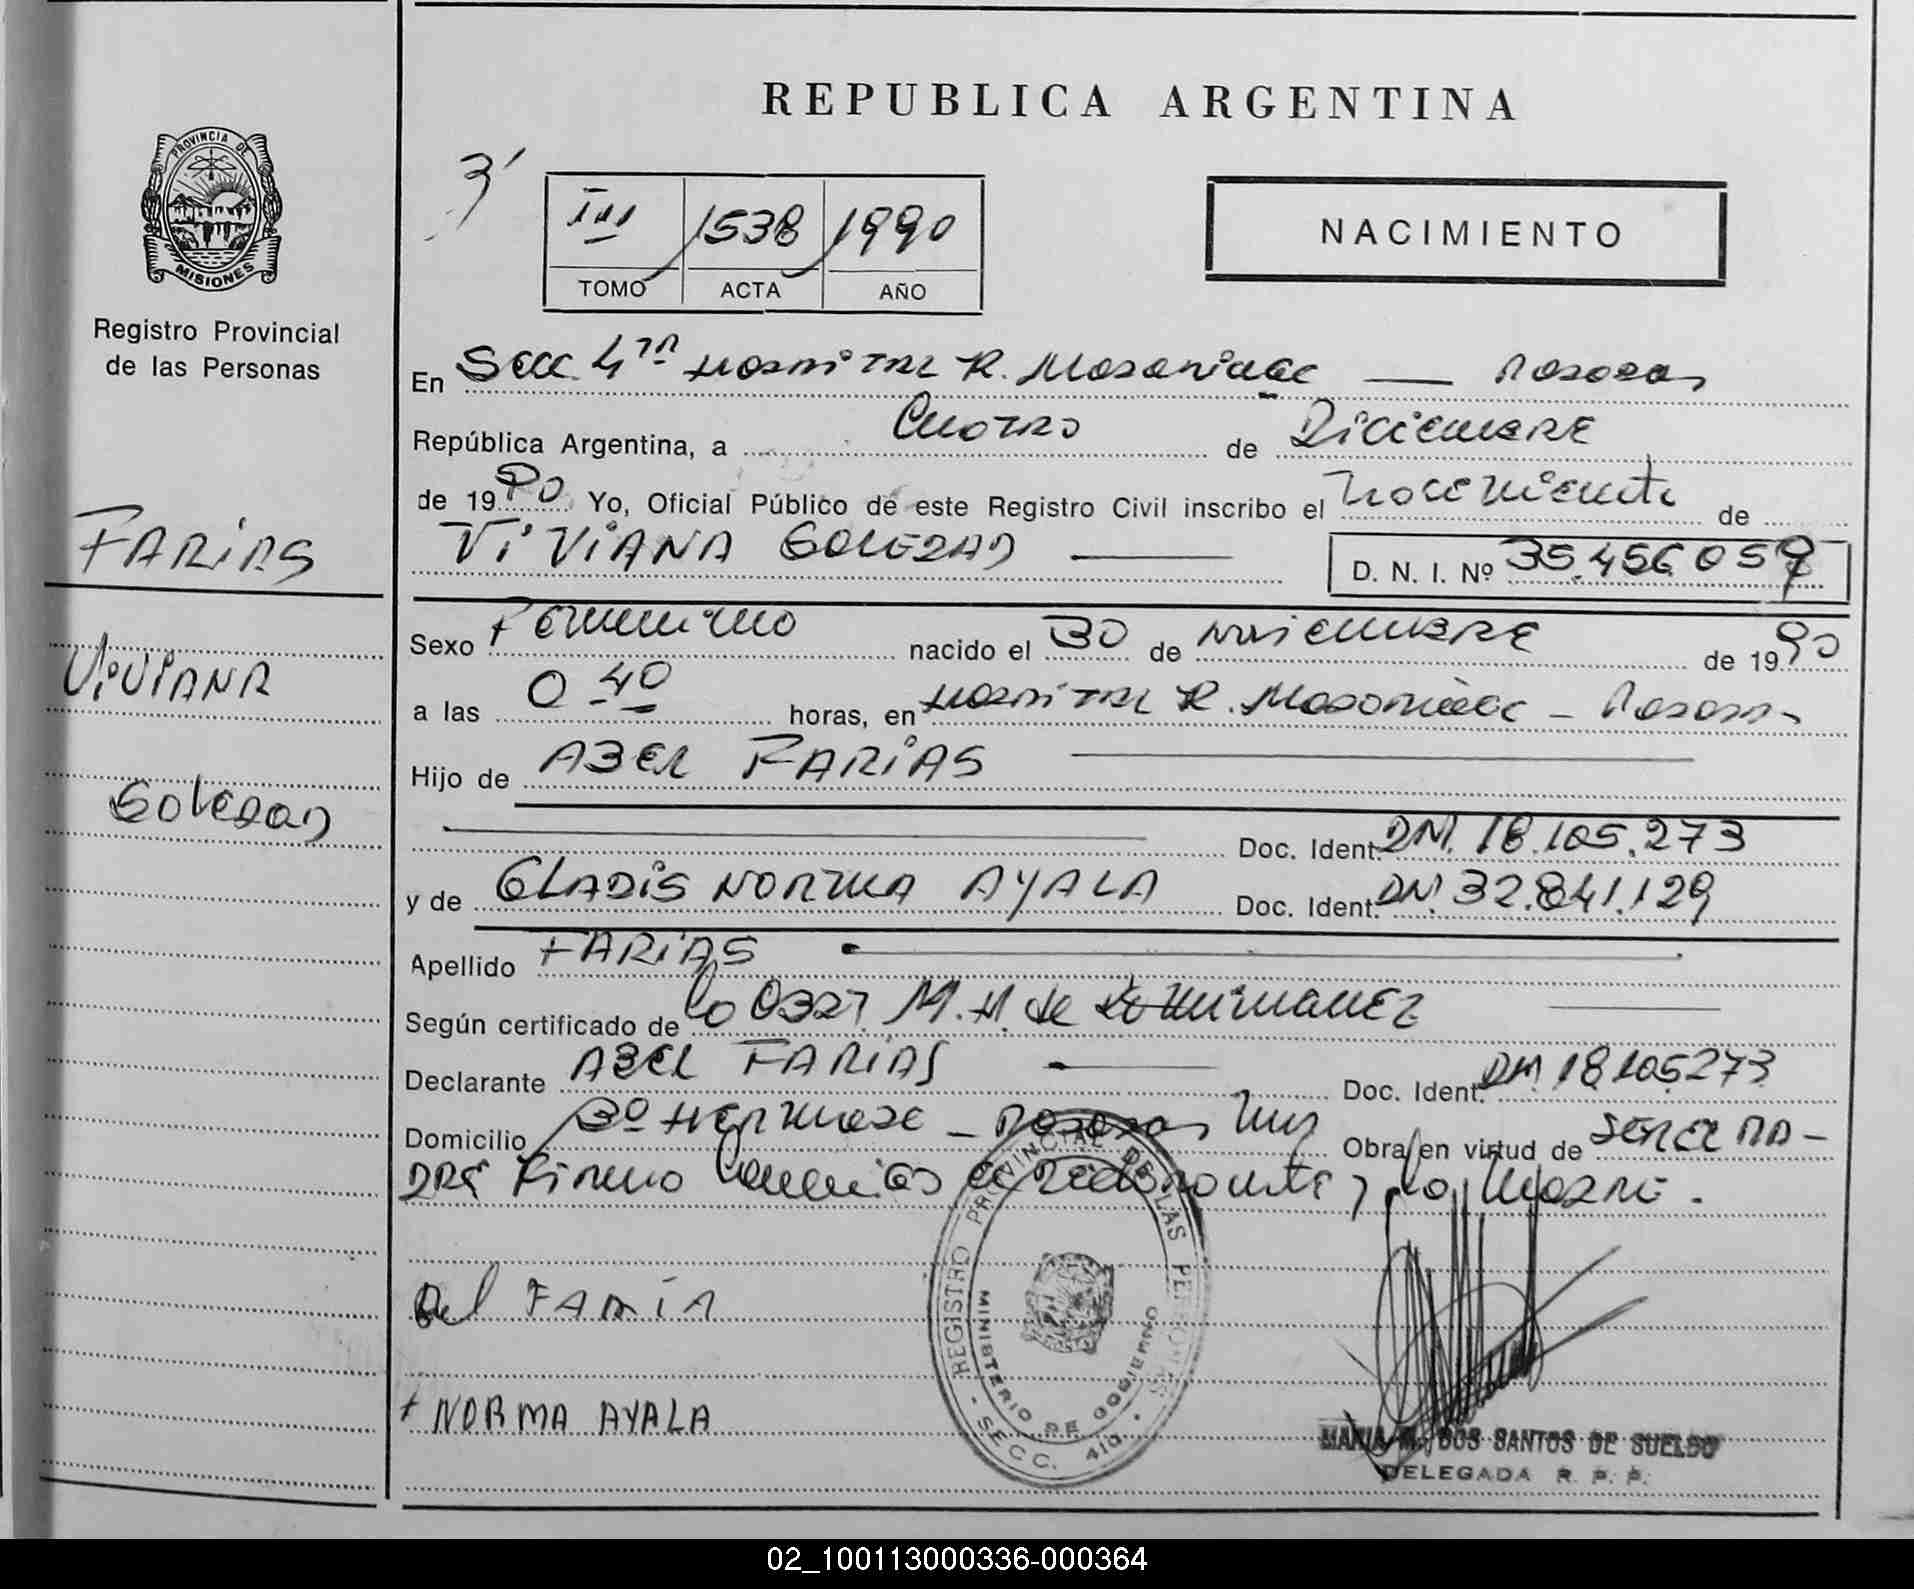 REPUBLICA ARGENTINA
PROVINCIA DE
MISIONES
Registro Provincial
de las Personas
3'
III 1538 1990
TOMO ACTA AÑO
NACIMIENTO
En Secc. 4ta Hospital R. Madariaga — Posadas
República Argentina, a Cuatro de Diciembre
de 1990 Yo, Oficial Público de este Registro Civil inscribo el Nacimiento de
VIVIANA SOLEDAD — D. N. I. Nº 35.456.059
FARIAS
VIVIANA
SOLEDAD
Sexo Femenino nacido el 30 de Noviembre de 1990
a las 0 40 horas, en Hospital R. Madariaga - Posadas
Hijo de ABEL FARIAS
Doc. Ident. DNI. 18.105.273
y de GLADIS NORMA AYALA Doc. Ident. DNI. 32.841.129
Apellido FARIAS
Según certificado de la Obst. M. H. de
Declarante ABEL FARIAS — Doc. Ident. DNI. 18.105.273
Domicilio Bº - Posadas Mns Obra en virtud de ser el pa-
dre Firman el declarante y la madre.
FARIA
NORMA AYALA
REGISTRO PROVINCIAL DE LAS PERSONAS
MINISTERIO DE GOBIERNO
- SECC. 4ta. -
MARIA M. DOS SANTOS DE SUELDO
DELEGADA R. P. P.
02_100113000336-000364